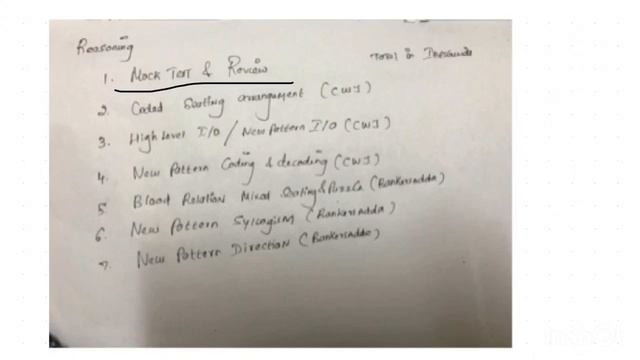 Reasoning
1. Mock Test & Review
2. Coded Seating arrangement (CWJ)
3. High Level I/O / New Pattern I/O (CWJ)
4. New Pattern Coding & decoding (CWJ)
5. Blood Relation Mixed Seating & Puzzle (Bankersadda)
6. New Pattern Syllogism (Bankersadda)
7. New Pattern Direction (Bankersadda)